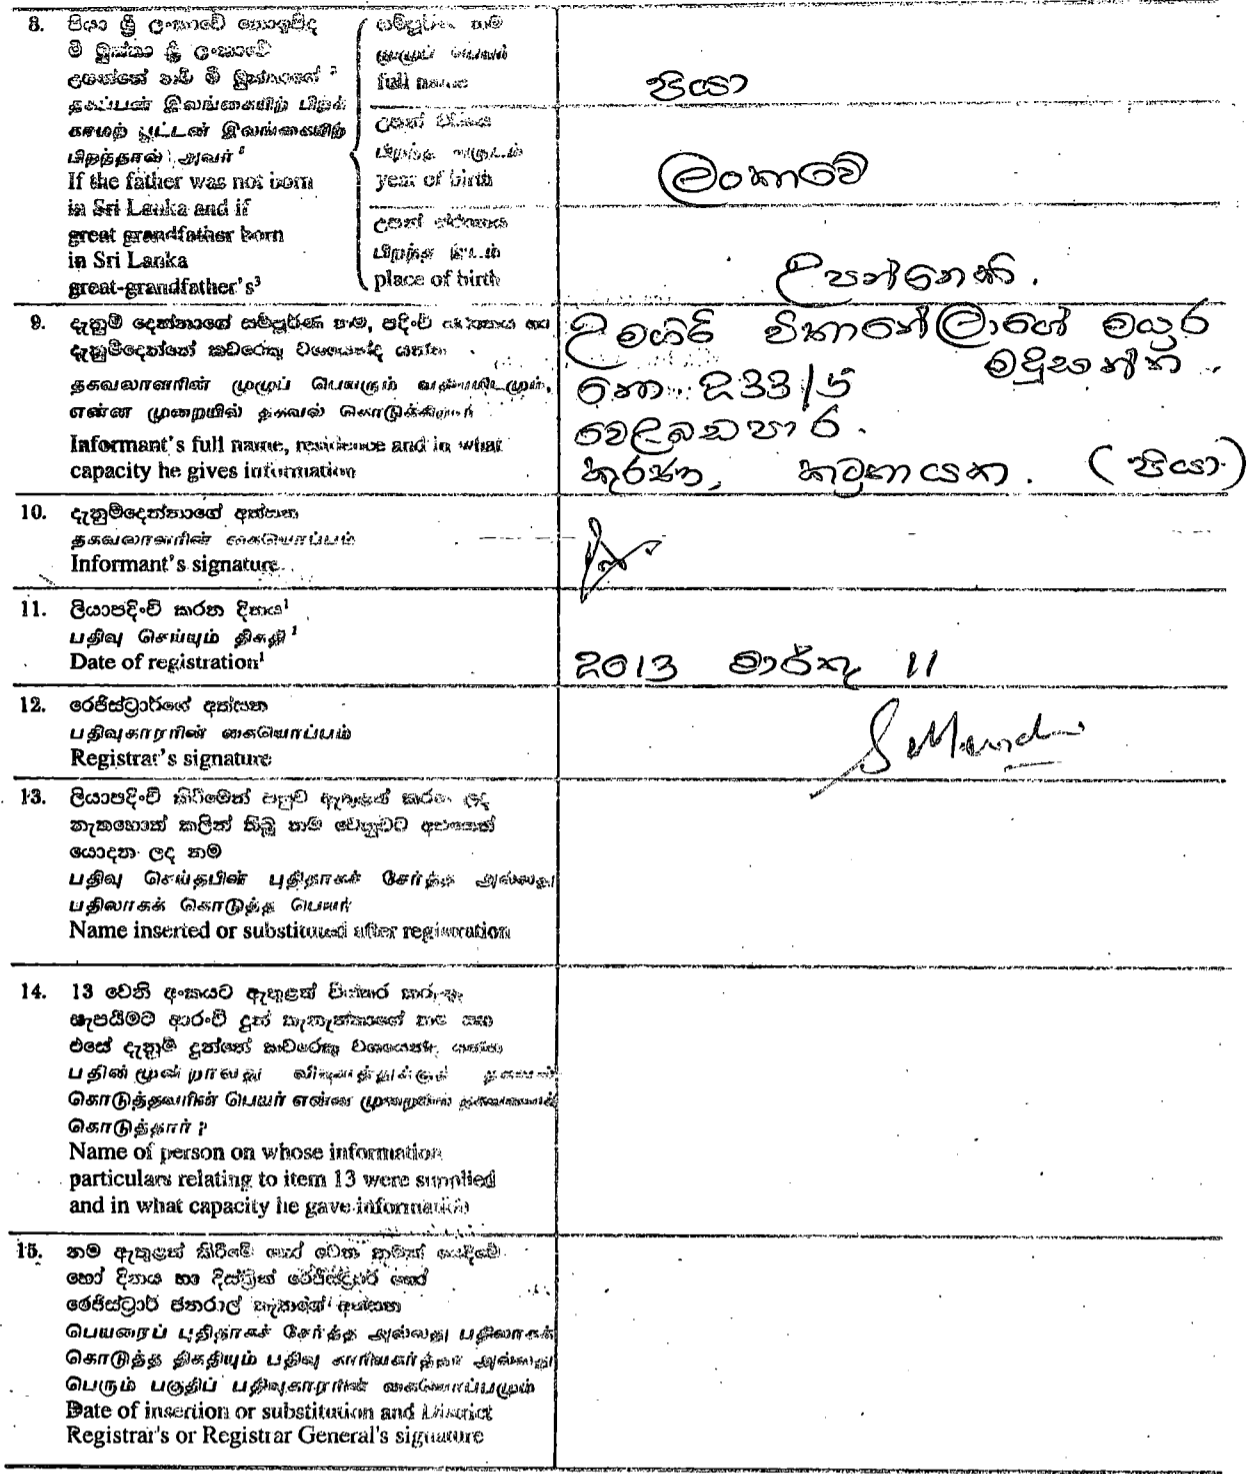 8. පියා ශ්‍රී ලංකාවේ නොඉපිද
මී මුත්තා ශ්‍රී ලංකාවේ
උපන්නේ නම් මී මුත්තාගේ
தகப்பன் இலங்கையிற் பிறக்
காமற் பூட்டன் இலங்கையிற்
பிறந்தால் அவர்
If the father was not born
in Sri Lanka and if
great grandfather born
in Sri Lanka
great-grandfather's³
සම්පූර්ණ නම
முழுப் பெயர்
full name
පියා
උපන් වර්ෂය
பிறந்த வருடம்
year of birth
ලංකාවේ
උපන් ස්ථානය
பிறந்த இடம்
place of birth
උපන්නෙකි.
9. දැනුම් දෙන්නාගේ සම්පූර්ණ නම, පදිංචි ස්ථානය සහ
දැනුම්දෙන්නේ කවරෙකු වශයෙන්ද යන්න
தகவலாளரின் முழுப் பெயரும் வதிவிடமும்,
என்ன முறையில் தகவல் கொடுக்கிறார்
Informant's full name, residence and in what
capacity he gives information
විතානේලාගේ මයුර
මදුසන්න.
නො 233/5
වෙළබඩපාර.
කුරණ, කටුනායක. (පියා)
10. දැනුම්දෙන්නාගේ අත්සන
தகவலாளரின் கையொப்பம்
Informant's signature
11. ලියාපදිංචි කරන දිනය¹
பதிவு செய்யும் திகதி¹
Date of registration¹
2013 මාර්තු 11
12. රෙජිස්ට්‍රාර්ගේ අත්සන
பதிவுகாரரின் கையொப்பம்
Registrar's signature
13. ලියාපදිංචි කිරීමෙන් පසුව ඇතුළත් කරන ලද
නැතහොත් කලින් තිබූ නම වෙනුවට අළුතෙන්
යොදන ලද නම
பதிவு செய்தபின் புதிதாகச் சேர்த்த அல்லது
பதிலாகக் கொடுத்த பெயர்
Name inserted or substituted after registration
14. 13 වෙනි අංකයට ඇතුළත් විස්තර කරුණු
සැපයීමට ආරංචි දුන් තැනැත්තාගේ නම සහ
එසේ දැනුම් දුන්නේ කවරෙකු වශයෙන්ද යන්න
பதின் மூன் றாவது விடயத்துக்குத் தகவல்
கொடுத்தவரின் பெயர் என்ன முறையில் தகவலைக்
கொடுத்தார் ?
Name of person on whose information
particulars relating to item 13 were supplied
and in what capacity he gave information
15. නම ඇතුළත් කිරීමේ හෝ වෙන නමක් යෙදීමේ
හෝ දිනය හා දිස්ත්‍රික් රෙජිස්ට්‍රාර් හෝ
රෙජිස්ට්‍රාර් ජනරාල් තැනගේ අත්සන
பெயரைப் புதிதாகச் சேர்த்த அல்லது பதிலாகக்
கொடுத்த திகதியும் பதிவு காரியகர்த்தா அல்லது
பெரும் பகுதிப் பதிவுகாரரின் கையொப்பமும்
Date of insertion or substitution and District
Registrar's or Registrar General's signature